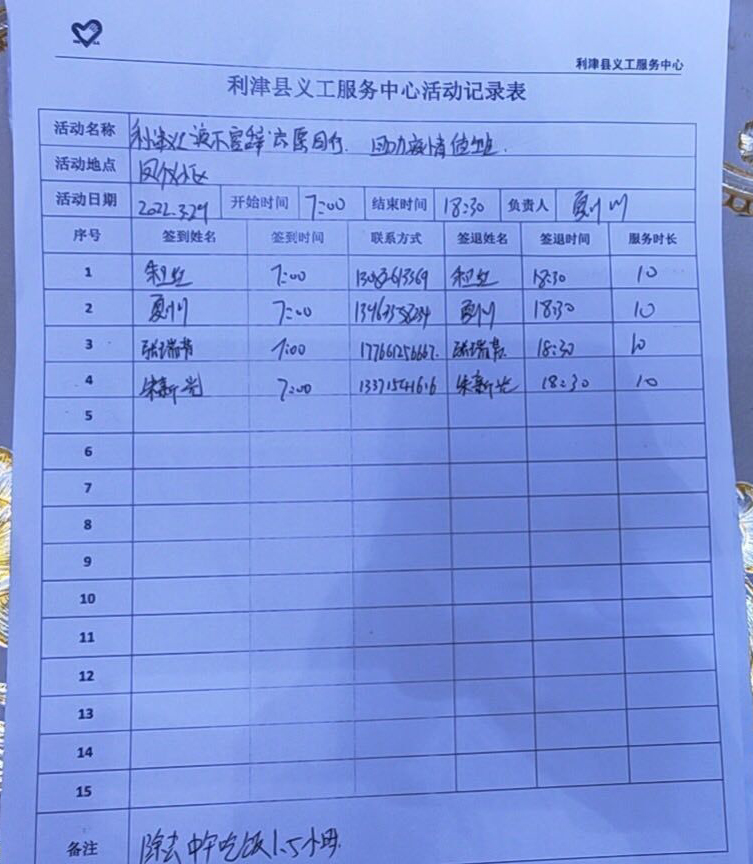 利津县义工服务中心
利津县义工服务中心活动记录表
活动名称 利津义工 辞 志愿同行. 助力疫情值班.
活动地点 凤仪社区
活动日期 2022.3.29 开始时间 7:00 结束时间 18:30 负责人 夏川川
序号 签到姓名 签到时间 联系方式 签退姓名 签退时间 服务时长
1 7:00 18:30 10
2 7:00 18:30 10
3 7:00 177661256667. 18:30 10
4 宋新光 7:00 13371541616 宋新光 18:30 10
5
6
7
8
9
10
11
12
13
14
15
备注 除去中午吃饭1.5小时.